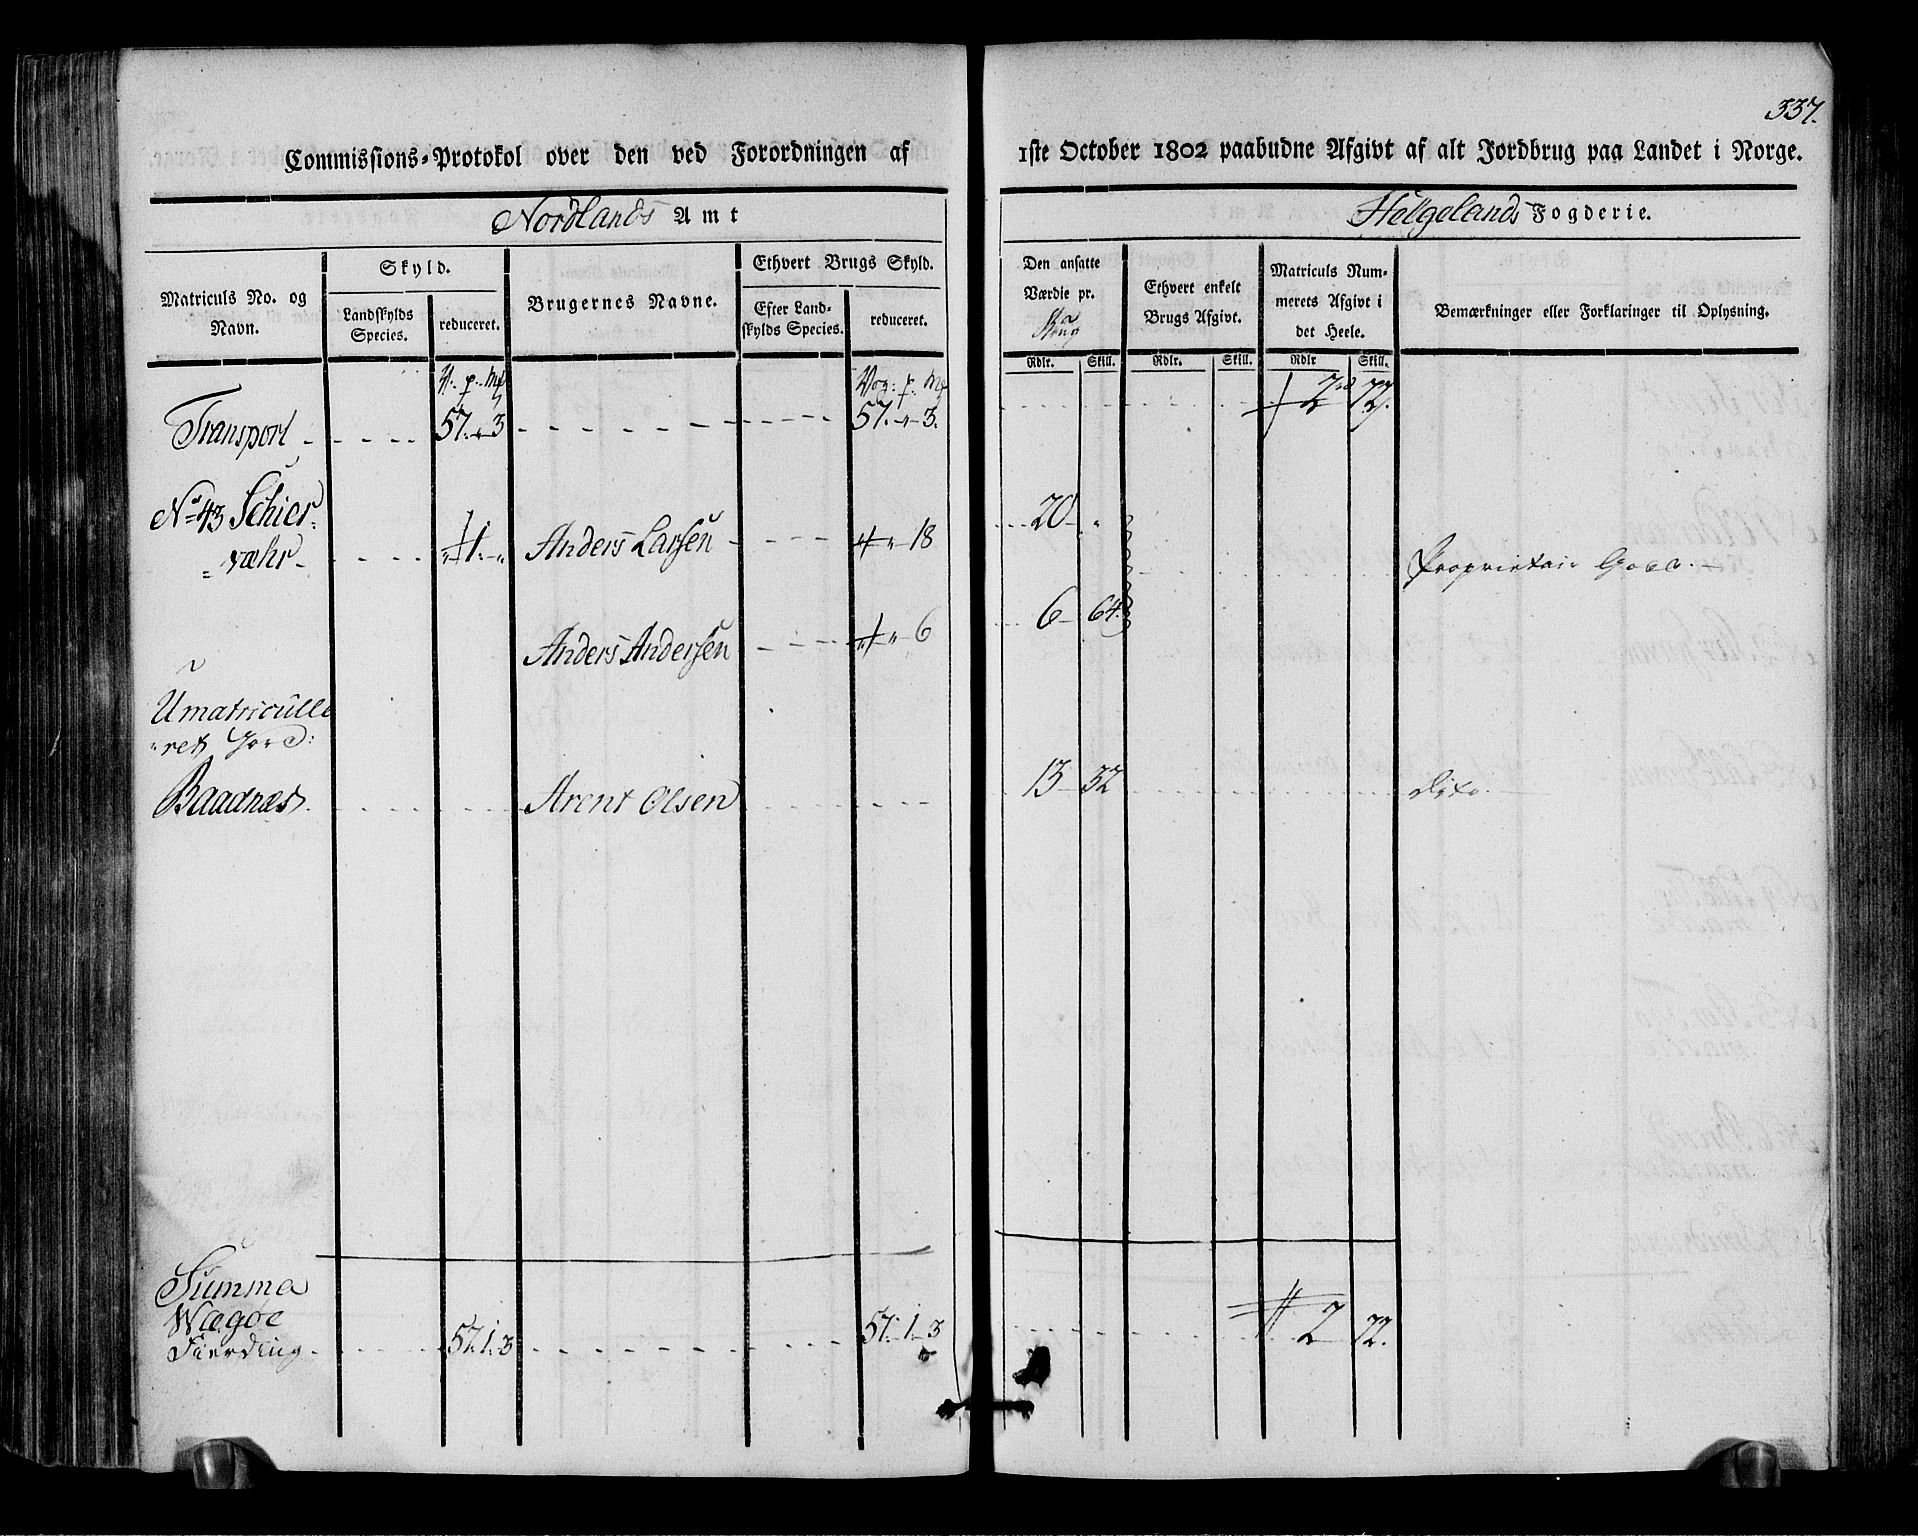 337.
Commissions-Protokol over den ved Forordningen af 1ste October 1802 paabudne Afgivt af alt Jordbrug paa Landet i Norge.
Nordlands Amt
Helgelands Fogderie.
Matriculs No. og Navn.
Skyld.
Landskylds Species.
reduceret.
Brugernes Navne.
Ethvert Brugs Skyld.
Efter Landskylds Species.
reduceret.
Den ansatte Værdie pr.
Ethvert enkelt Brugs Afgivt.
Matriculs Nummerets Afgivt i det Heele.
Bemærkninger eller Forklaringer til Oplysning.
Rdlr. Skill. Rdlr. Skill. Rdlr Skill.
V. p. M
Vog: p. M
Transport 57. " 3 57. " 3. 2 72.
No 43 Schier=
=væhr 1. " Anders Larsen " 18 20 " Proprietair Goed.
Anders Andersen " 6 6 64.
Umatriculle
ret Jord:
Baadnæs. Arent Olsen 13 32 dito.
Summa
Wægøe
Fierding 57. 1. 3 57. 1. 3 2 72.